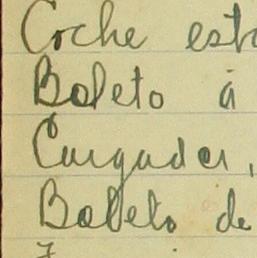 Coche esta
Boleto á
Cargador,
Boleto de